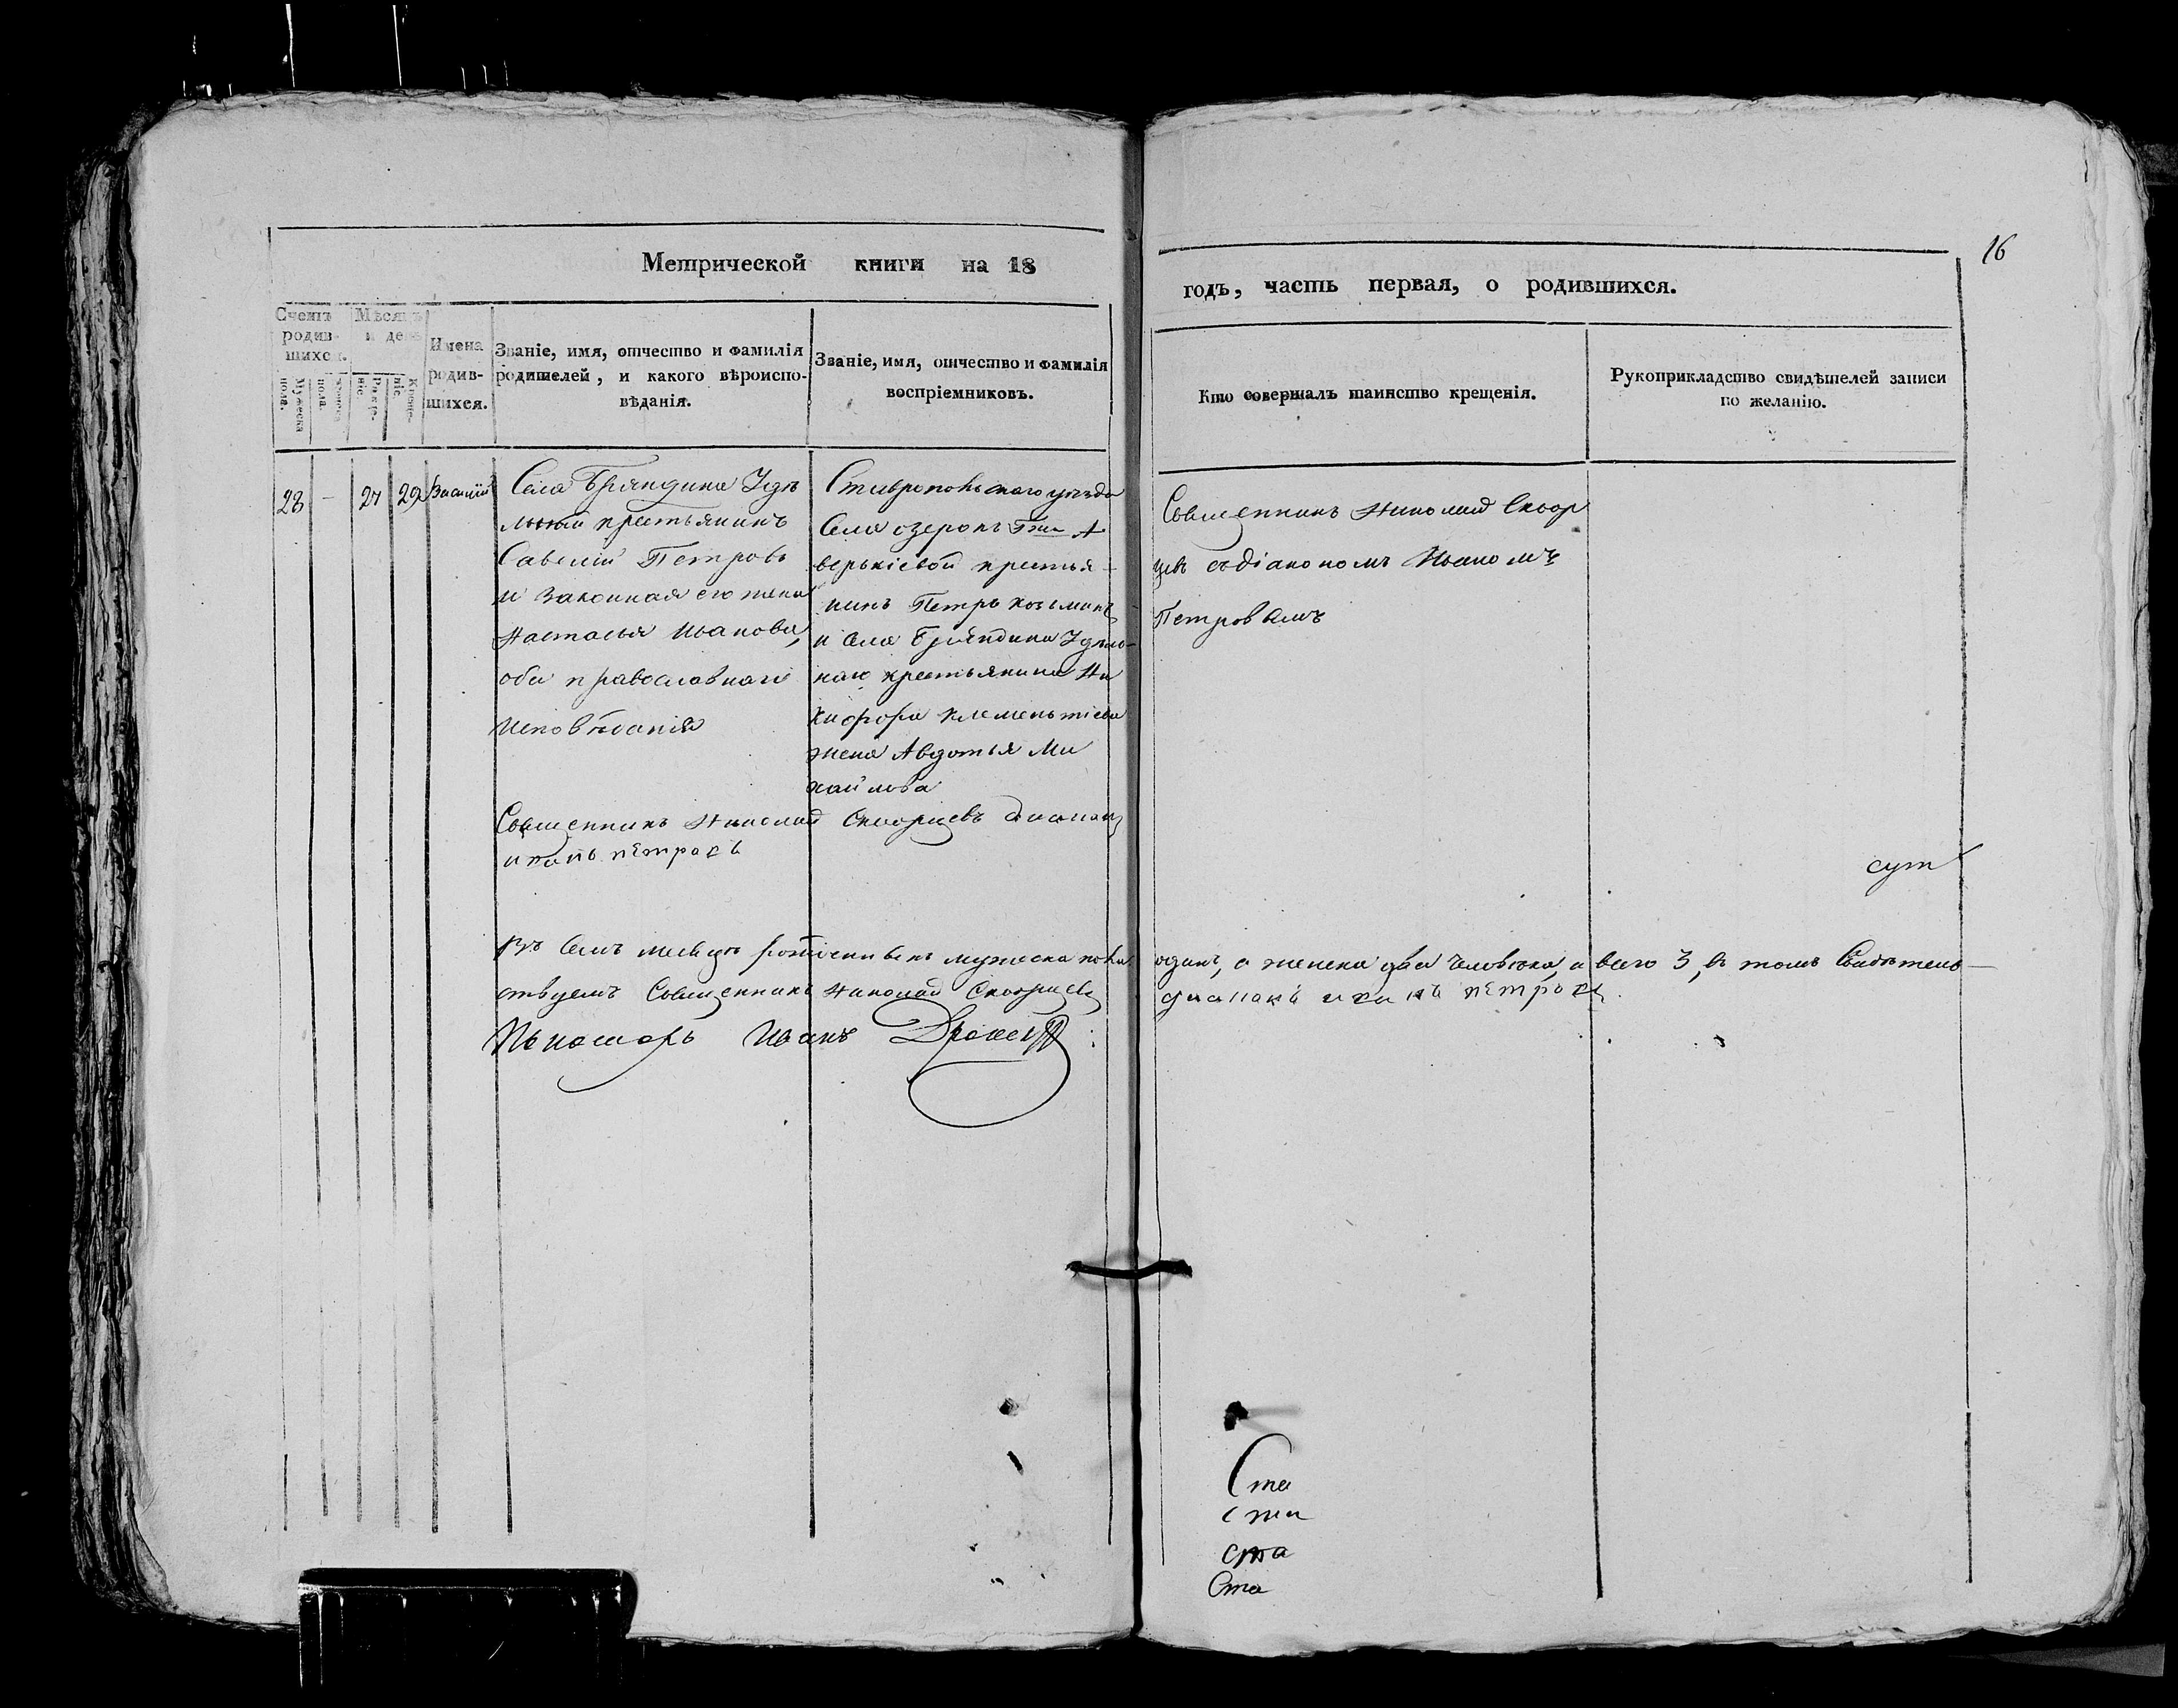 16
Метрической книги на 18
годъ, часть первая, о родившихся.
Счетъ родив-шихся.
Мужеска пола.
Женска пола.
Мѣсяцъ и день
Рожде-ніе.
Креще-ніе.
Имена
родив-
шихся.
Званіе, имя, отчество и фамилія
родителей, и какого вѣроиспо-
вѣданія.
Званіе, имя, отчество и фамилія
воспріемниковъ.
Кто совершалъ таинство крещенія.
Рукоприкладство свидѣтелей записи
по желанію.
28 - 27 29 Василій
Села Бряндина Удѣ
льный крестьянинъ
Савелій Петровъ
и законная его жена
Настасья Иванова,
оба православнаго
исповѣданія
Ставропольскаго уѣзда
села озерокъ Гжи А
веркіевой крестья-
нинъ Петръ Козьминъ
и села Бряндина Удѣль-
наго крестьянина Ни
кифора Клементіева
жена Авдотья Ми
хайлова
Священникъ Николай Сквор
цевъ съ діакономъ Иваномъ
Петровымъ
Священникъ Николай Скворцевъ диаконъ
иванъ петровъ
сут
Въ семъ месяцѣ родившихъ мужеска пола одинъ, а женска два человѣка, а всего 3, въ томъ Свидѣтель-
ствуемъ Священникъ Николай Скворцевъ диаконъ иванъ петровъ.
Пономарь Иванъ
Ста
ста
ста
Ста